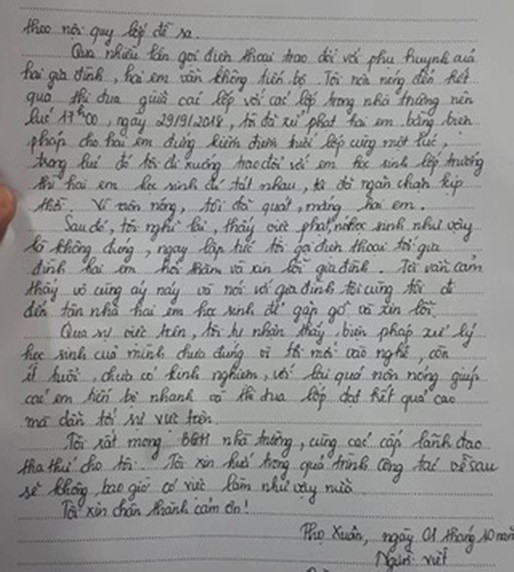 theo nội quy lớp đề ra.
Qua nhiều lần gọi điện thoại trao đổi với phụ huynh của
hai gia đình, hai em vẫn không tiến bộ. Tôi nôn nóng đến kết
quả thi đua giữa các lớp với các lớp trong nhà trường nên
lúc 17h00, ngày 29/9/2018, tôi đã xử phạt hai em bằng biện
pháp cho hai em đứng kiểm điểm trước lớp cùng một lúc,
trong lúc đó tôi đi xuống trao đổi với em học sinh lớp trưởng
thì hai em học sinh đó tát nhau, tôi đã ngăn chặn kịp
thời. Vì nôn nóng, tôi đã quát, mắng hai em.
Sau đó, tôi nghĩ lại, thấy việc phạt học sinh như vậy
là không đúng, ngay lập tức tôi gọi điện thoại tới gia
đình hai em hỏi thăm và xin lỗi gia đình. Tôi vẫn cảm
thấy vô cùng áy náy và nói với gia đình tôi cũng tôi đi
đến tận nhà hai em học sinh để gặp gỡ và xin lỗi.
Qua sự việc trên, tôi tự nhận thấy, biện pháp xử lý
học sinh của mình chưa đúng vì tôi mới vào nghề, còn
ít tuổi, chưa có kinh nghiệm, với lại quá nôn nóng giúp
các em tiến bộ nhanh và thi đua lớp đạt kết quả cao
mà dẫn tới sự việc trên.
Tôi rất mong BGH nhà trường, cùng các cấp lãnh đạo
tha thứ cho tôi. Tôi xin hứa trong quá trình công tác về sau
sẽ không bao giờ có việc làm như vậy nữa.
Tôi xin chân thành cảm ơn!
Phọ Xuân, ngày 01 tháng 10 năm
Người viết